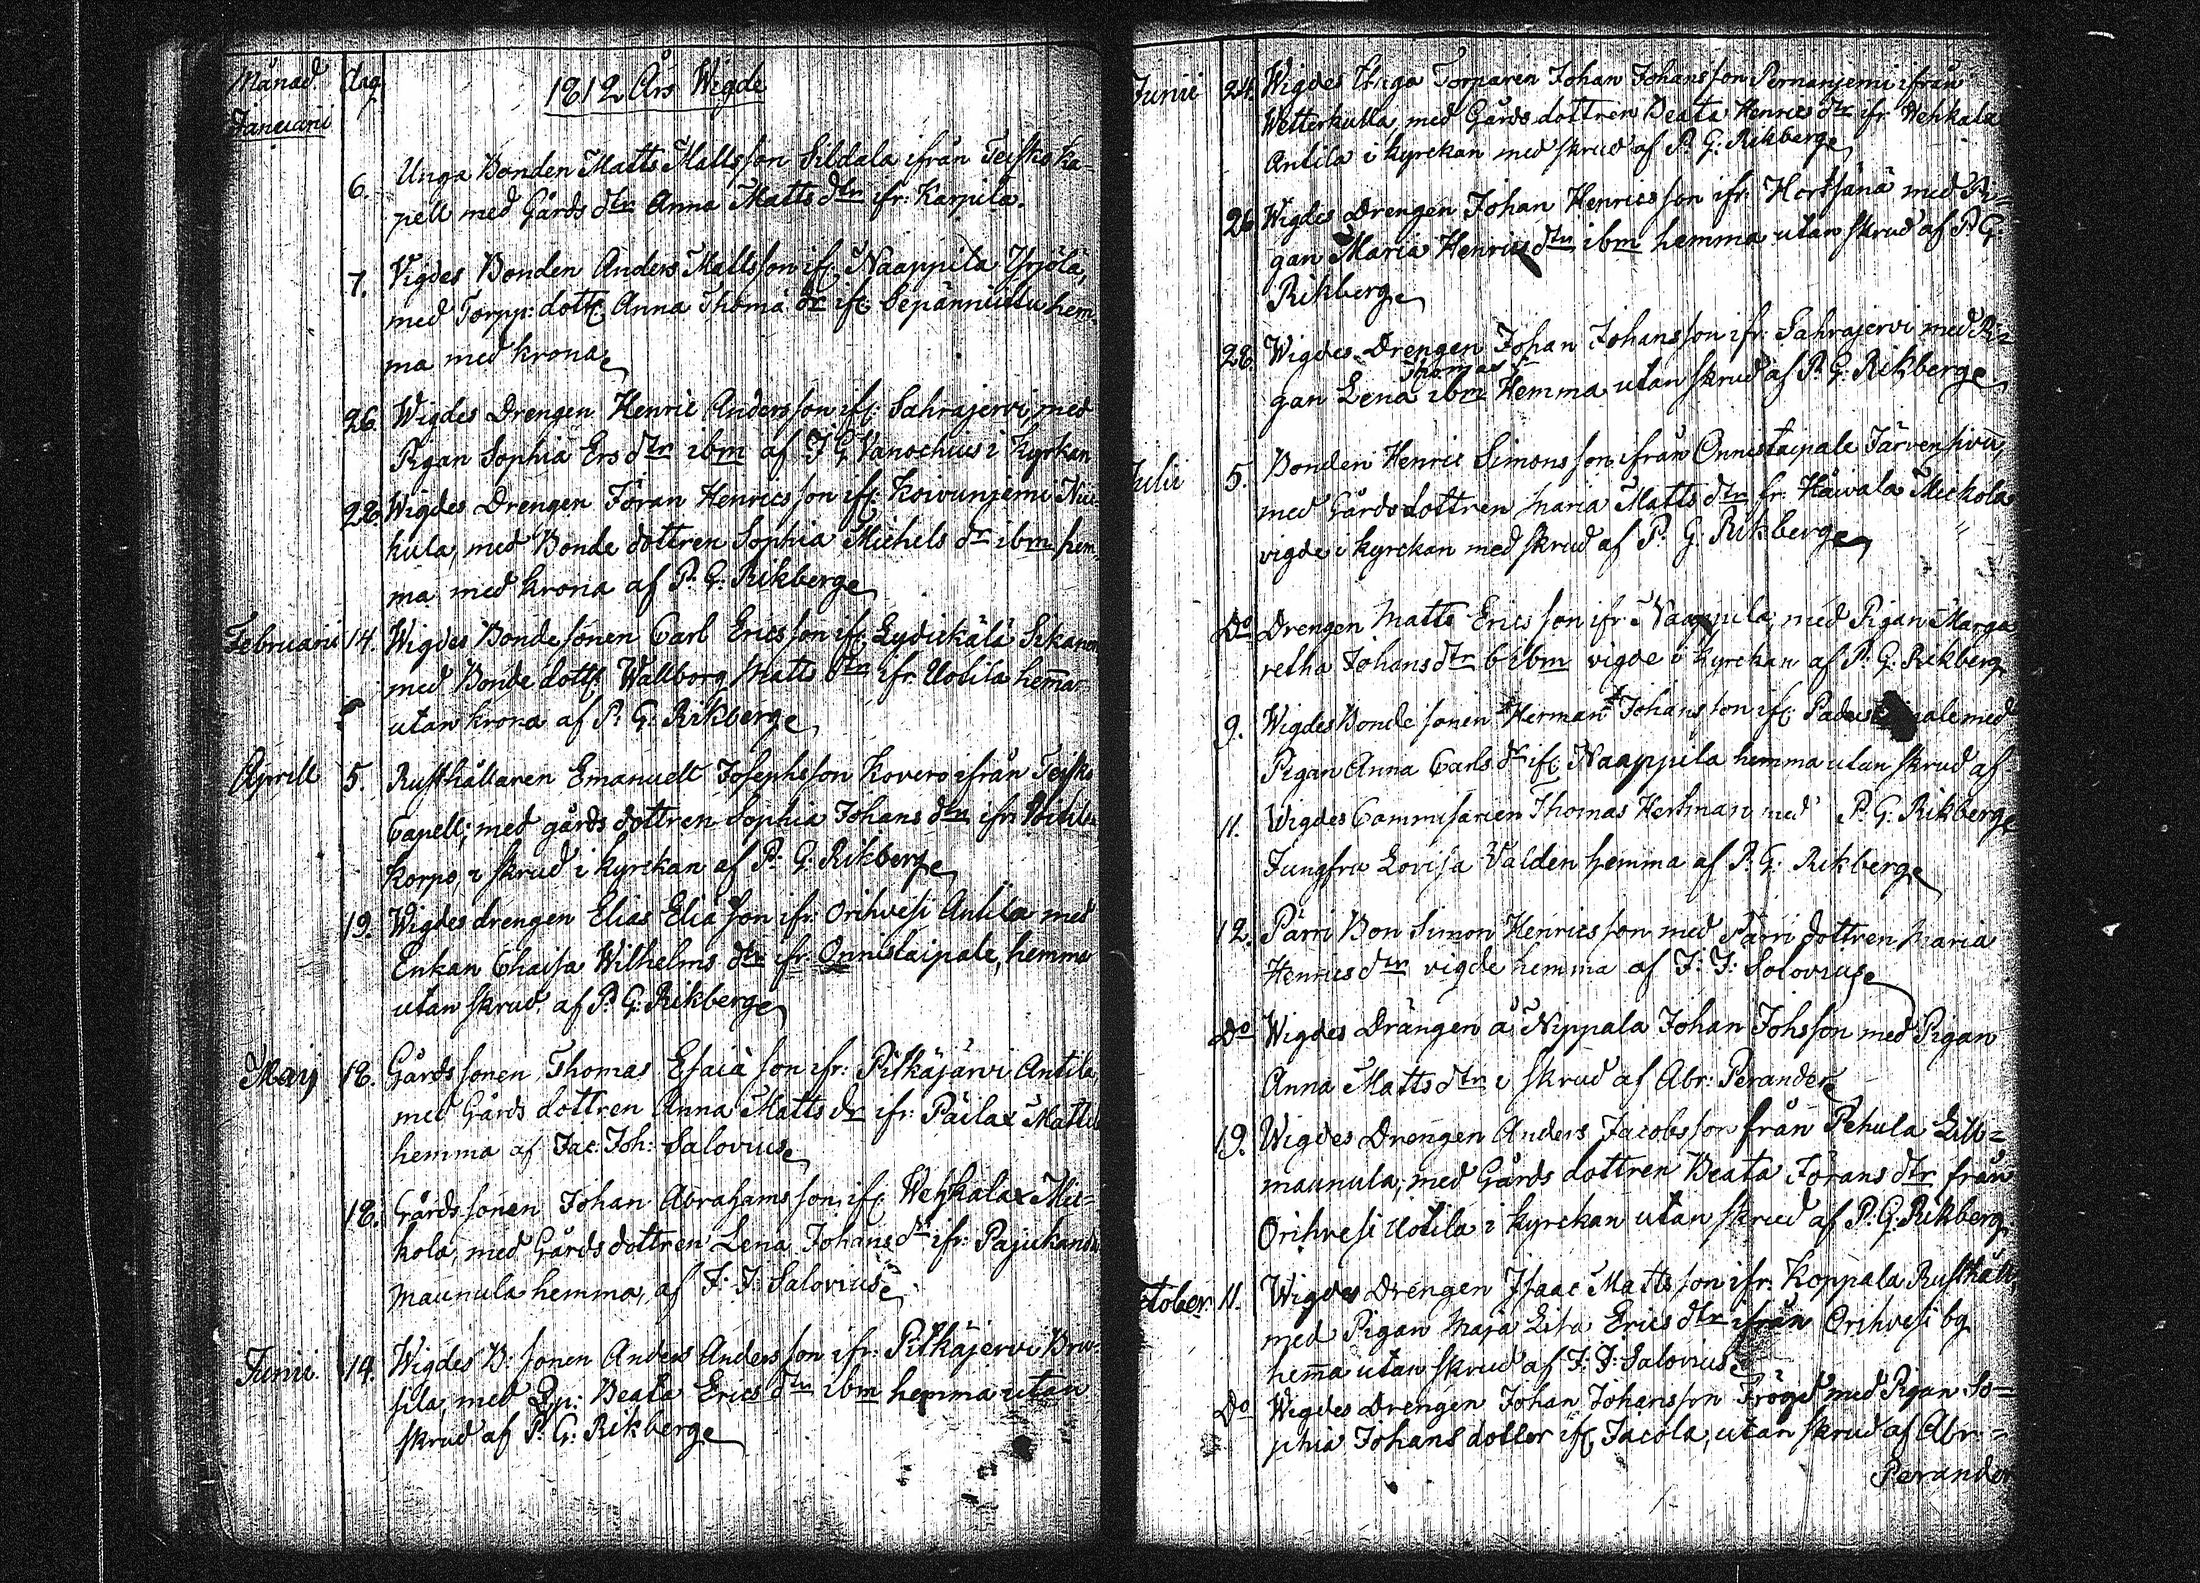 Månad. dag. 1812 Års Wigde
Januarii
6. Unga Bonden Matts Mattsson Sildala ifrån Teisko ka-
pell med Gårds dtr Anna Matts dtr ifr: Karpila.
7. Vigdes Bonden Anders Mattsson ifr: Naappila Yrjölä,
med Torpp: dottr: Anna Thomä dr ifr: Sepänniittu hem
ma med krona
26. Wigdes Drengen Henric Andersson ifr: Sahrajervi, med
Pigan Sophia Ers dtr ibm af J G Vanochius i Kyrkan
28. Wigdes Drengen Jöran Henricsson ifr: Koivuniemi Nii
kula, med Bonde dottren Sophia Michels dr ibm hem
ma med krona af P. G: Rikberg
Februarii 14. Wigdes Bondesonen Carl Ericsson ifr: Lydickälä Sikanen
med Bonde dottr: Wallborg Matts dtr ifr. Uotila hem̄a
utan krona af P. G: Rikberg
Aprill 5. Rusthållaren Emanuell Josephsson Kovero ifrån Teisko
Capell; med gårds dottren Sophia Johans dtr ifr: Poitila
Korpo, i skrud i kyrckan af P: G: Rikberg
19. Wigdes drengen Elias Eliä son ifr: Orihvesi Antila med
Enkan Chaisa Wilhelms dtr ifr. Onnistaipale, hemma
utan skrud. af P. G: Rikberg
Maij 18. Gårds sonen Thomas Esaiä son ifr: Pitkäjärvi Antila
med Gårds dottren Anna Matts dr ifr: Päilax Mattila
hemma af Jac: Joh: Salovius
18. Gårds sonen Johan Abrahamsson, ifr: Wehkalax Mic-
kola, med Gårds dottren Lena Johans dr ifr: Pajukanda
Maunula hemma, af J: J: Salovius
Junii. 14. Wigdes B: sonen Anders Andersson ifr: Pitkäjervi Bru-
sila, med Beata Erics dtr ibm hemma utan
skrud af P. G: Rikberg
Junii 24. Wigdes Unga Torparen Johan Johansson Pernaniemi ifrån
Wetterkulla, med Gårds dottren Beata Henrics dtr ifr Wehkala
Antila i kyrckan med skrud af P. G: Rikberg
26 Wigdes Drengen Johan Henricsson ifr: Hortsänä med Pi-
gan Maria Henrics dtr ibm hemma utan skrud af P. G:
Rikberg
28. Wigdes Drengen Johan Johansson ifr: Sahrajervi med Pi-
Thomas dr
gan Lena ibm Hemma utan skrud af P. G: Rikberg
Julii 5. Bonden Henric Simonsson, ifrån Onnistaipale Järvensivu,
med Gårdsdottren Maria Matts dtr fr. Haivala Mickola
vigde i kyrckan med skrud af P. G. Rikberg
Do Drengen Matts Ericsson ifr. Naappila; med Pigan Marga
retha Johans dtr ibm vigde i kyrckan af P: G: Rikberg
9. Wigdes Bonde sonen Herman Johansson ifr: med
Pigan Anna Carls dr ifr: Naappila hemma utan skrud af
P. G: Rikberg
11. Wigdes Commisarien Thomas Hertman med
Jungfru Lovisa Valden hemma af P. G: Rikberg
12. Pärri Bon Simon Henricsson med Pärri dottren Maria
Henrics dtr vigde hemma af J: J: Solovius
Do Wigdes Drängen å Nippala Johan Johsson med Pigan
Anna Matts dtr i skrud af Abr: Perander
19. Wigdes Drengen Anders Jacobsson från Pehula Lill-
maunula; med Gårds dottren Beata Jörans dtr från
Orihvesi Uotila i kyrckan utan skrud af P. G: Rikberg
ctober 11. Wigdes Drengen Isaac Mattsson ifr: Koppala Rusthåll,
med Pigan Maja Lisa Erics dtr ifrån Orihvesi by
hem̄a utan skrud af J: J: Salovius
Do Wigdes Drengen Johan Johansson Frögd med Pigan So-
phia Johans dotter ifr: Jacola, utan skrud af Abr-
Perander